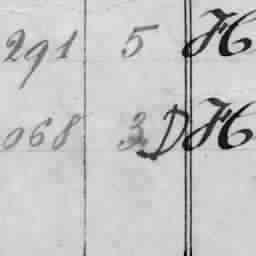 291 5 H
068 3 D H